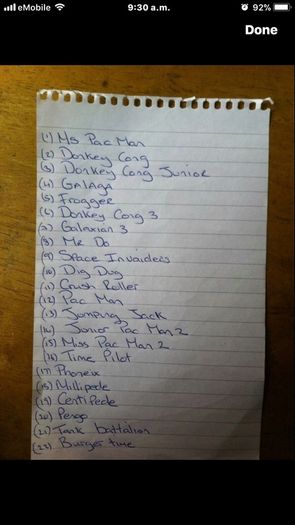 eMobile 9:30 a.m. 92%
Done
(1) Ms Pac Man
(2) Donkey Cong
(3) Donkey Cong Junior
(4) GALAGA
(5) Frogger
(6) Donkey Cong 3
(7) Galaxian 3
(8) Mr Do
(9) Space Invaiders
(10) Dig Dug
(11) Crush Roller
(12) Pac Man
(13) Jumping Jack
(14) Junior Pac Man 2
(15) Miss Pac Man 2
(16) Time Pilot
(17) Phoneix
(18) Millipede
(19) Centipede
(20) Pengo
(21) Tank battalion
(22) Burger time